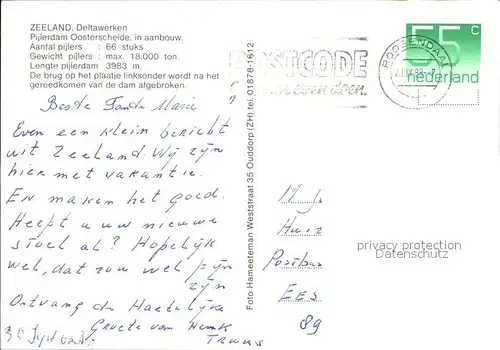 ZEELAND, Deltawerken
Pijlerdam Oosterschelde, in aanbouw.
Aantal pijlers : 66 stuks
Gewicht pijlers : max. 18.000 ton.
Lengte pijlerdam 3983 m.
De brug op het plaatje linksonder wordt na het
gereedkomen van de dam afgebroken.
Beste Tante Marie
Even een klein bericht
uit Zeeland. Wij zijn
hier met vakantie.
En maken het goed.
Heeft u uw nieuwe
stoel al? Hopelijk
wel, dat zou wel fijn
zijn
Ontvang de Hartelijke
Groete van Henk
Truus
Foto Hameeteman Weststraat 35 Ouddorp (ZH) tel. 01878-1612
POSTCODE
even doen.
ROOSENDAAL
55 c
nederland
Huiz
Postbus
EES
89
privacy protection
Datenschutz